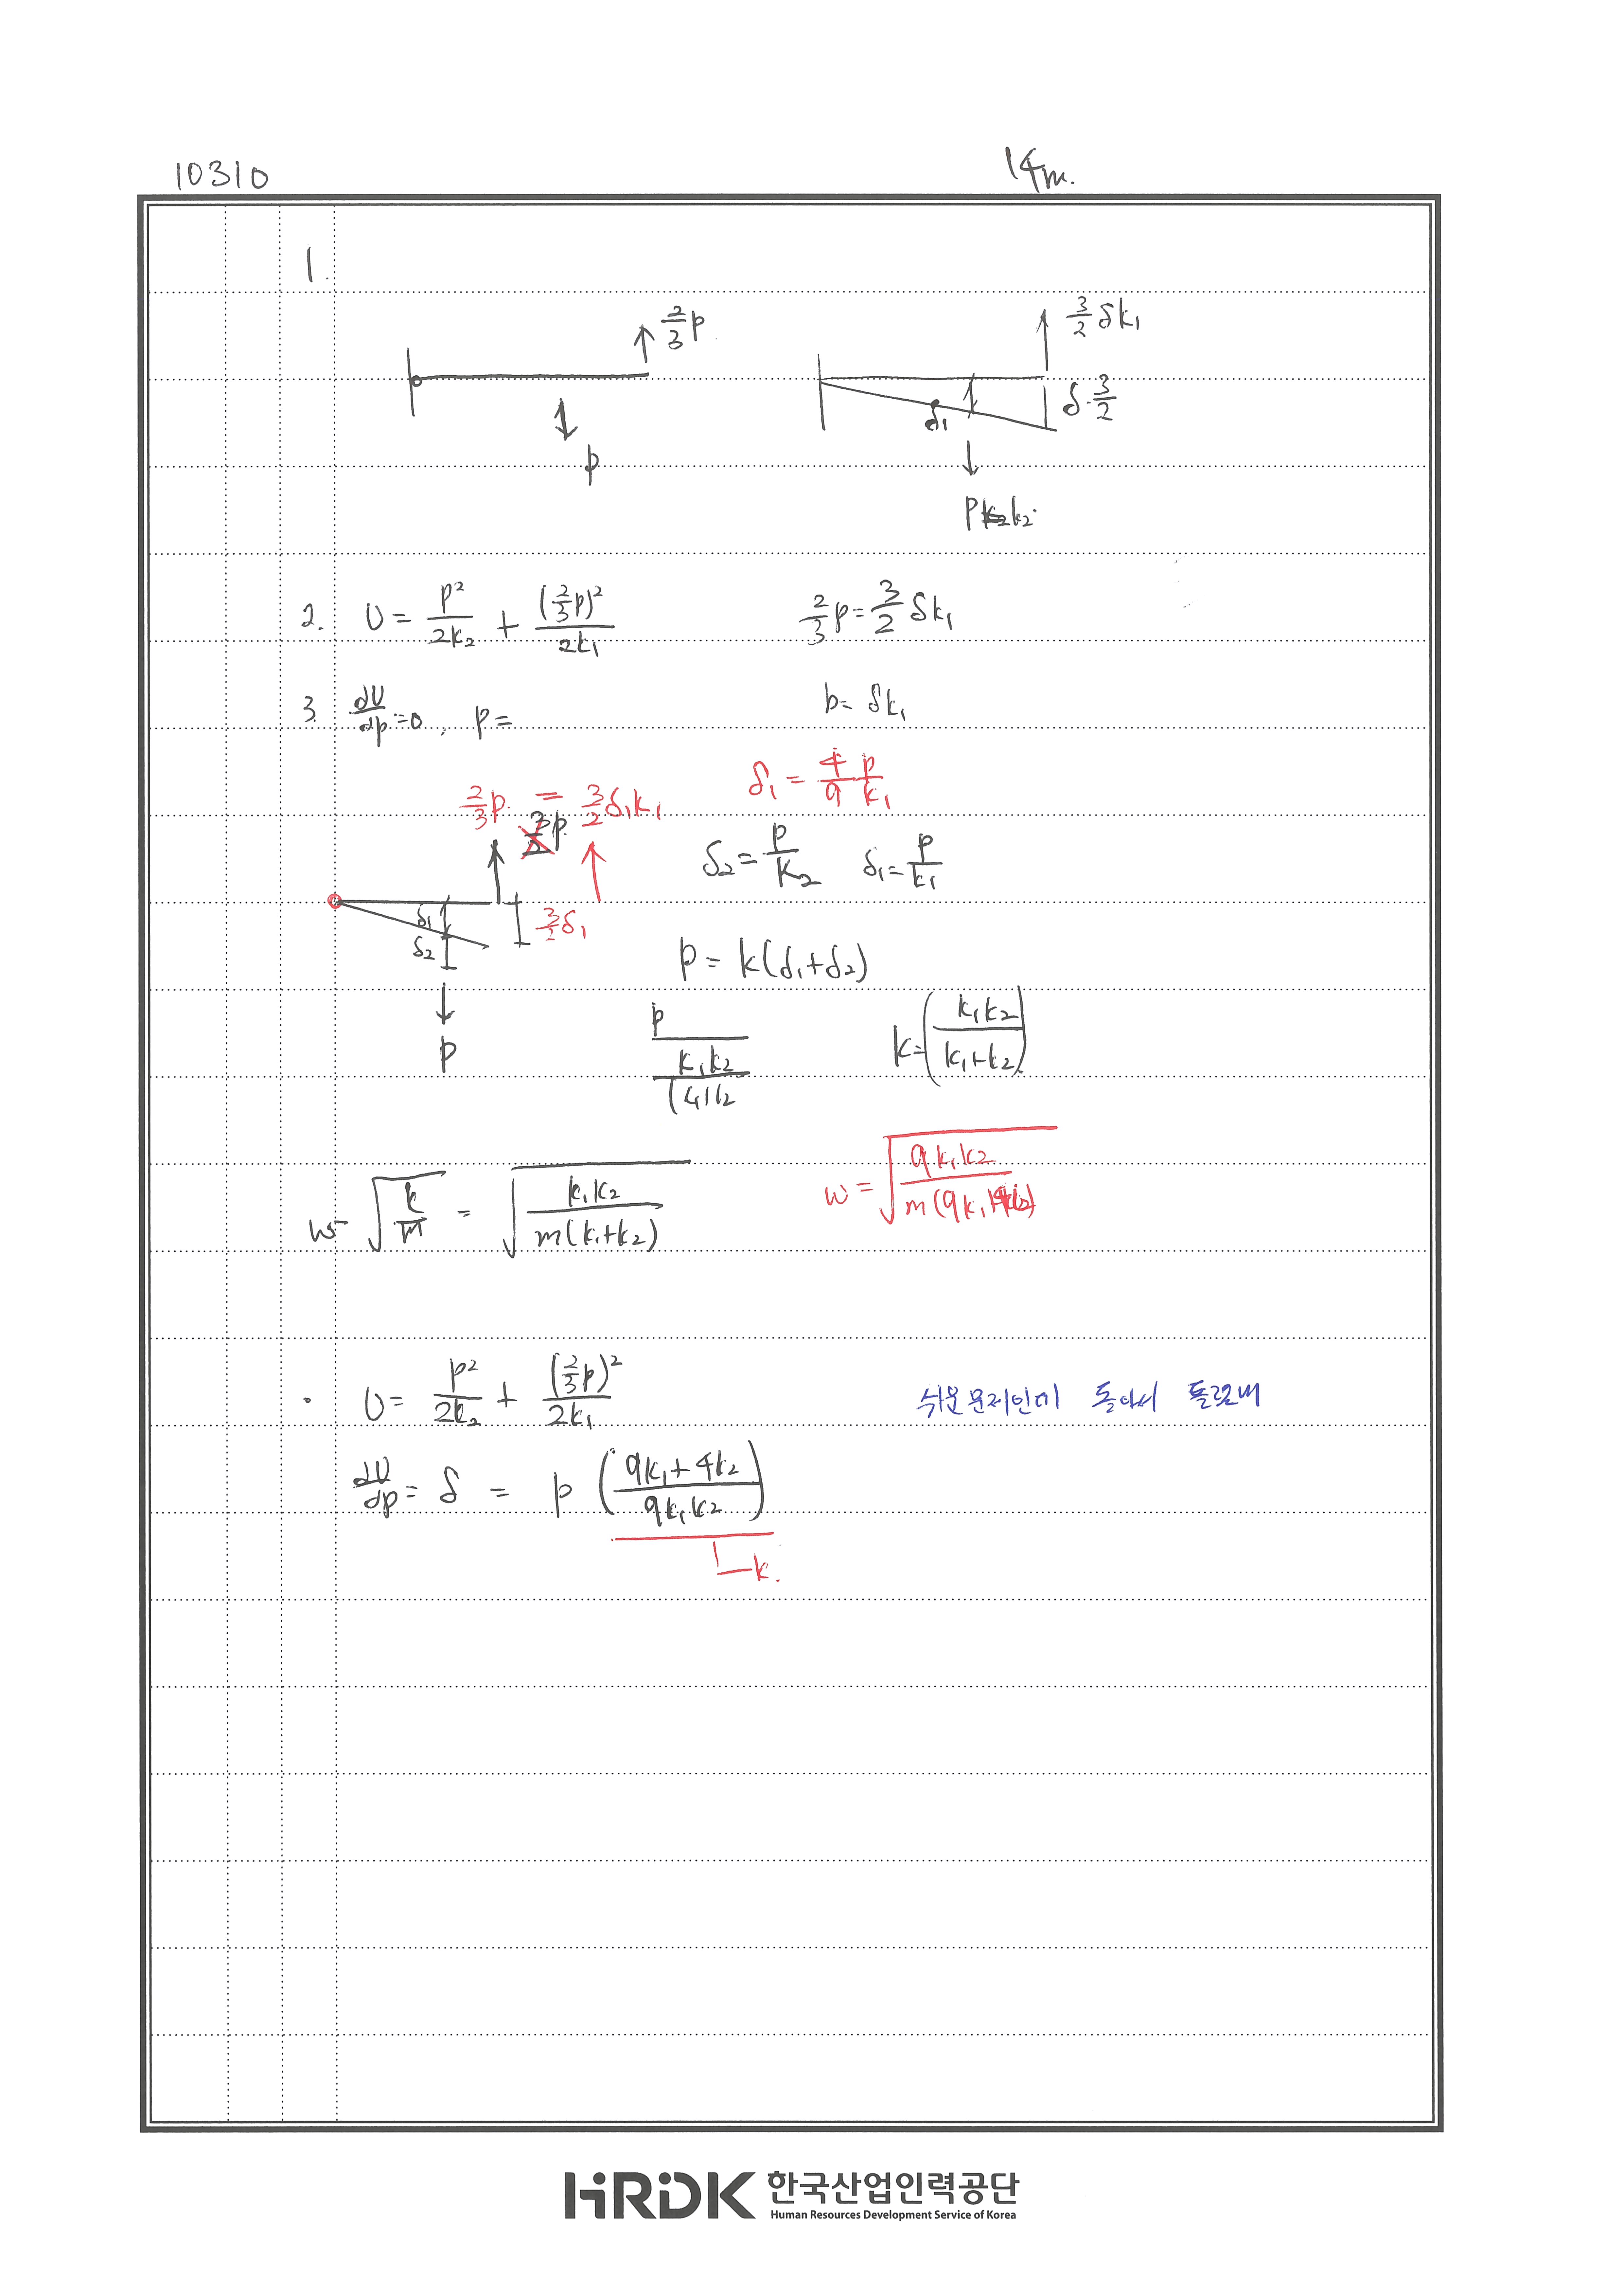 10310
14m.
1.
2/3 p
3/2 δk₁
δ·3/2
δ₁
p
pk₂
2. U = p²/2k₂ + (2/3 p)²/2k₁
2/3 p = 3/2 δk₁
3. dU/dp = 0, p =
b = δk₁
δ₁ = 4/9 p/k₁
2/3 p = 3/2 δ₁k₁
δ₂ = p/k₂ δ₁ = p/k₁
δ₁
δ₂
3/2 δ₁
p
p = k(δ₁+δ₂)
k = (k₁k₂/(k₁+k₂))
w = √(k/m) = √(k₁k₂/m(k₁+k₂))
w = √(9k₁k₂/m(9k₁+4k₂))
· U = p²/2k₂ + (2/3 p)²/2k₁
쉬운문제인데 돌아서 풀었네
dU/dp = δ = p (9k₁+4k₂/9k₁k₂)
k.
HRDK 한국산업인력공단
Human Resources Development Service of Korea